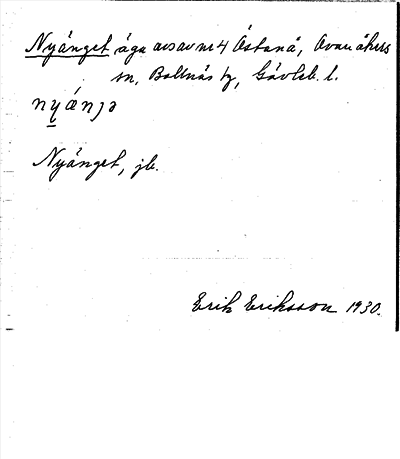 Nyänget äga avsavnr 4 Östanå, Ovanåkers
sn, Bollnäs tg, Gävleb. l.
Nyänget, jb.
Erik Eriksson 1930.